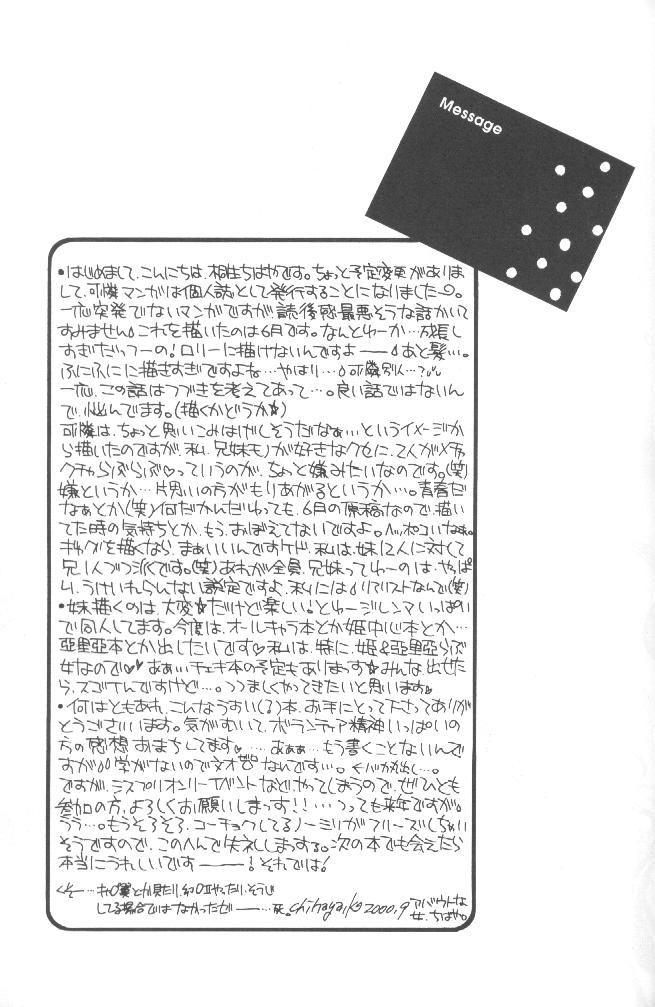 Message
•はじめまして、こんにちは、相生ちはやです。ちょっと予定変更がありま
して、可憐マンガは個人誌として発行することになりました
一応突発でないマンガですが、読後感最悪そうな話かいて
すみません これを描いたのは6月です。なんとゆーか…成長し
すぎだっつーの!ロリーに描けないんですよ――あと髪…。
ふにふにに描きすぎですよね…やはり…可憐別人…?
一応、この話はつづきを考えてあって…。良い話ではないん
で、悩んでます。(描くかどうか☆)
可憐は、ちょっと思いこみはげしそうだなぁ…というイメージか
ら描いたのですが、私、兄妹モノが好きなクセに、2人がメチャ
クチャらぶらぶっていうのが、ちょっと嫌みたいなのです。(笑)
嫌というか…片思いの方がもりあがるというか…。青春だ
なぁとか(笑)何だかんだゆっても、6月の原稿なので、描い
てた時の気持ちとか、もう、おぼえてないですよ。ヘッポコいなぁ。
ギャグを描くなら、まぁいいんですケド、私は、妹12人に対して
兄1人づつ派です。(笑)あれが全員、兄妹ってゆーのは、やっぱ
り、うけいれらんない設定ですよ、私には リアリストなんで(笑)
•妹描くのは、大変☆だけど楽しい!とゆージレンマいっぱい
で同人してます。今度は、オールキャラ本とか姫中心本とか…
亜里亜本とか出したいです 私は、特に、姫&亜里亜らぶ
女なので♥♥あぁ…チェキ本の予定もありまっす☆みんな出せた
ら、スゴイんですけど…。つつましくやってきたいと思います
•何はともあれ、こんなうすい(?)本、お手にとって下さってありが
とうございます。気がむいて、ボランティア精神いっぱいの
方の感想おまちしてます。…あぁぁ…もう書くことないんで
すが 学がないので文才ゼロなんです…。←バカ丸出し…。
ですが、シスプリオンリーイベントなどやってしまうので、ぜひとも
参加の方、よろしくお願いしまっす!!…つっても来年ですが。
うう…。もうそろそろ、コーチョクしてるノーミソがフリーズしちゃい
そうですので、このへんで失礼しまする。次の本でも会えたら
本当にうれしいです――!それでは!
してる場合ではなかったぜ――…死。chihaya,ik 2000,9 アバウトな
女、ちはや。